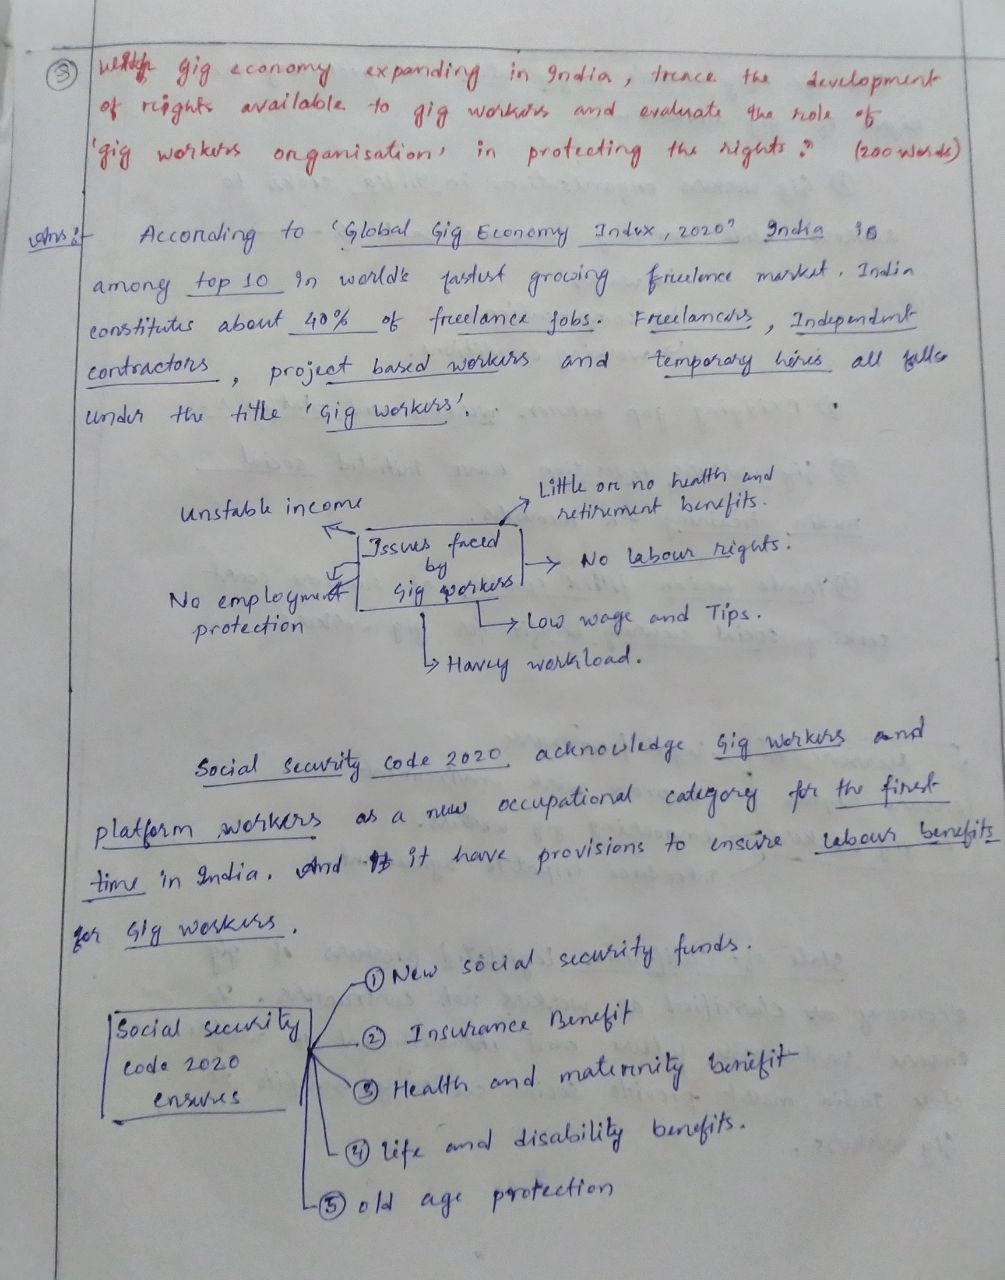 ③ With gig economy expanding in India, trace the development
of rights available to gig workers and evaluate the role of
'gig workers organisation' in protecting the rights? (200 words)
Ans:- According to 'Global Gig Economy Index, 2020' India is
among top 10 in world's fastest growing freelence market. India
constitutes about 40% of freelance jobs. Freelancers, Independent
contractors, project based workers and temporary hires all falls
under the title 'Gig workers'.
Little or no health and
retirement benefits.
Unstable income
Issues faced
by
Gig workers
No labour rights.
No employment
protection
Low wage and Tips.
Havey workload.
Social Security Code 2020 acknowledge Gig workers and
platform workers as a new occupational category for the first
time in India. And it have provisions to ensure labour benefits
for Gig workers.
Social security
code 2020
ensures
① New social security funds.
② Insurance Benefit
③ Health and maternity benefit
④ life and disability benefits.
⑤ old age protection